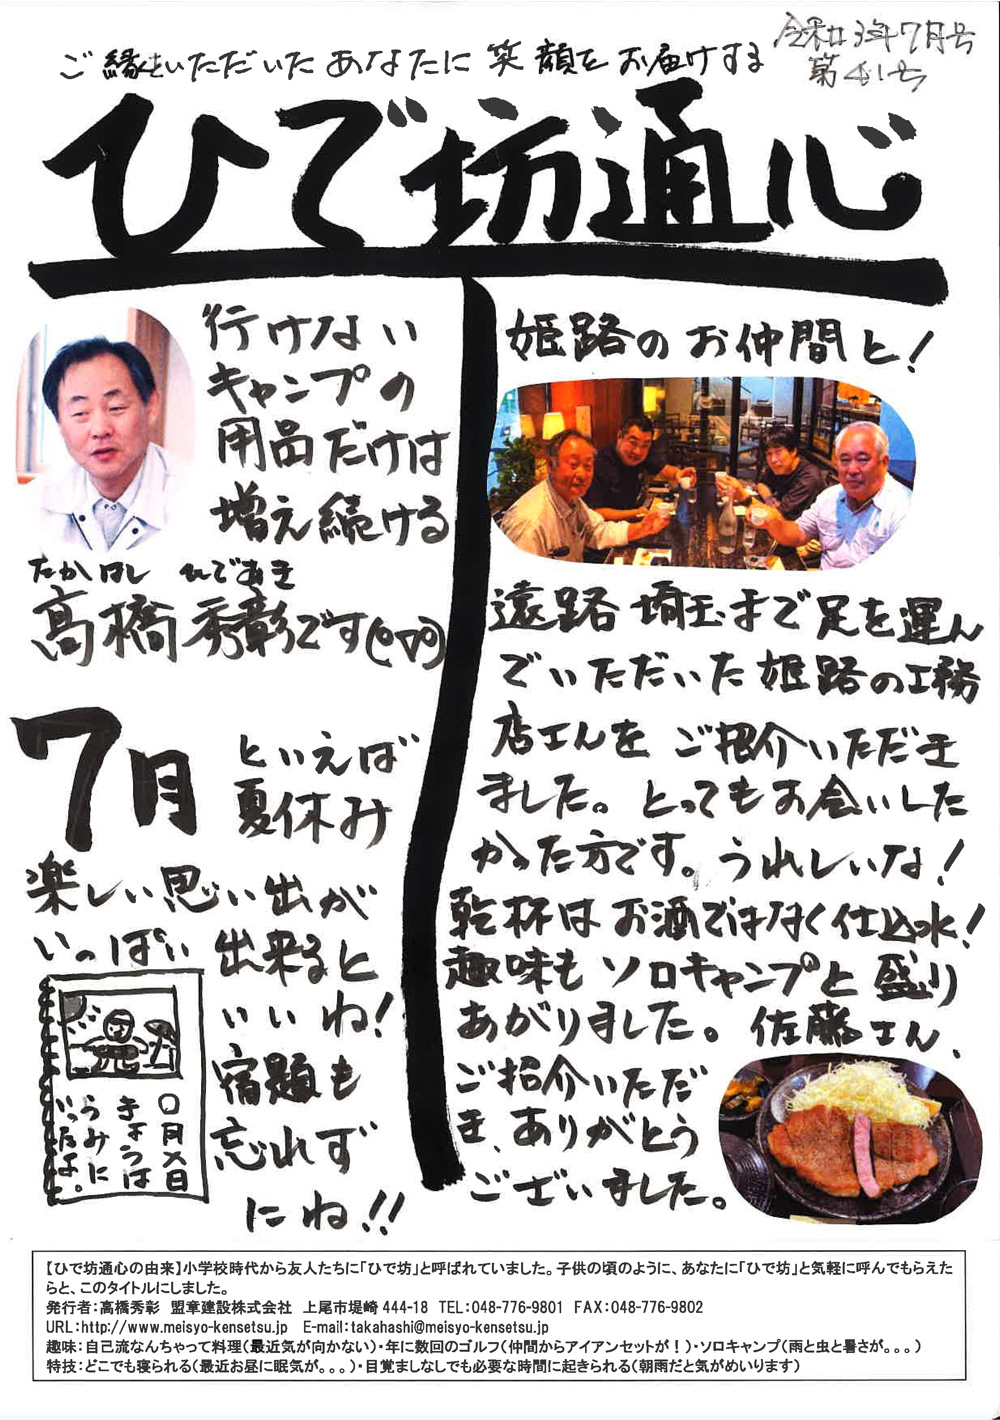 ご縁をいただいたあなたに笑顔をお届けする
令和3年7月号
第41号
ひで坊通心
行けない
キャンプの
用品だけは
増え続ける
たかはし ひであき
高橋秀彰です(^▽^)
7月
といえば
夏休み
楽しい思い出が
いっぱい出来ると
いいね!
宿題も
忘れず
にね!!
〇月×日
きょうは
うみに
いったよ。
姫路のお仲間と!
遠路埼玉まで足を運ん
でいただいた姫路の工務
店さんをご紹介いただき
ました。とってもお会いした
かった方です。うれしいな!
乾杯はお酒ではなく仕込水!
趣味もソロキャンプと盛り
あがりました。佐藤さん、
ご紹介いただ
き、ありがとう
ございました。
【ひで坊通心の由来】小学校時代から友人たちに「ひで坊」と呼ばれていました。子供の頃のように、あなたに「ひで坊」と気軽に呼んでもらえた
らと、このタイトルにしました。
発行者:高橋秀彰 盟章建設株式会社 上尾市堤崎 444-18 TEL:048-776-9801 FAX:048-776-9802
URL:http://www.meisyo-kensetsu.jp E-mail:takahashi@meisyo-kensetsu.jp
趣味:自己流なんちゃって料理(最近気が向かない)・年に数回のゴルフ(仲間からアイアンセットが!)・ソロキャンプ(雨と虫と暑さが。。。)
特技:どこでも寝られる(最近お昼に眠気が。。。)・目覚ましなしでも必要な時間に起きられる(朝雨だと気がめいります)